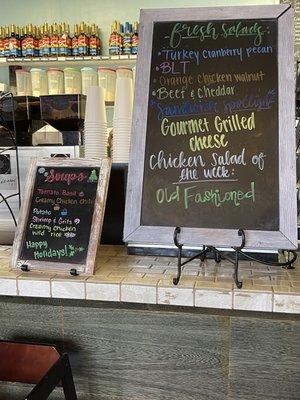 Fresh Salads
Turkey Cranberry Pecan
BLT
Orange Chicken Walnut
Beef & Cheddar
Sandwich Spotlight
Gourmet Grilled
Cheese
Chicken Salad of
the Week
Old Fashioned
Soups
Tomato Basil
Creamy Chicken Chili
Potato
Shrimp & Grits
Creamy Chicken
Wild Rice
Happy
Holidays!